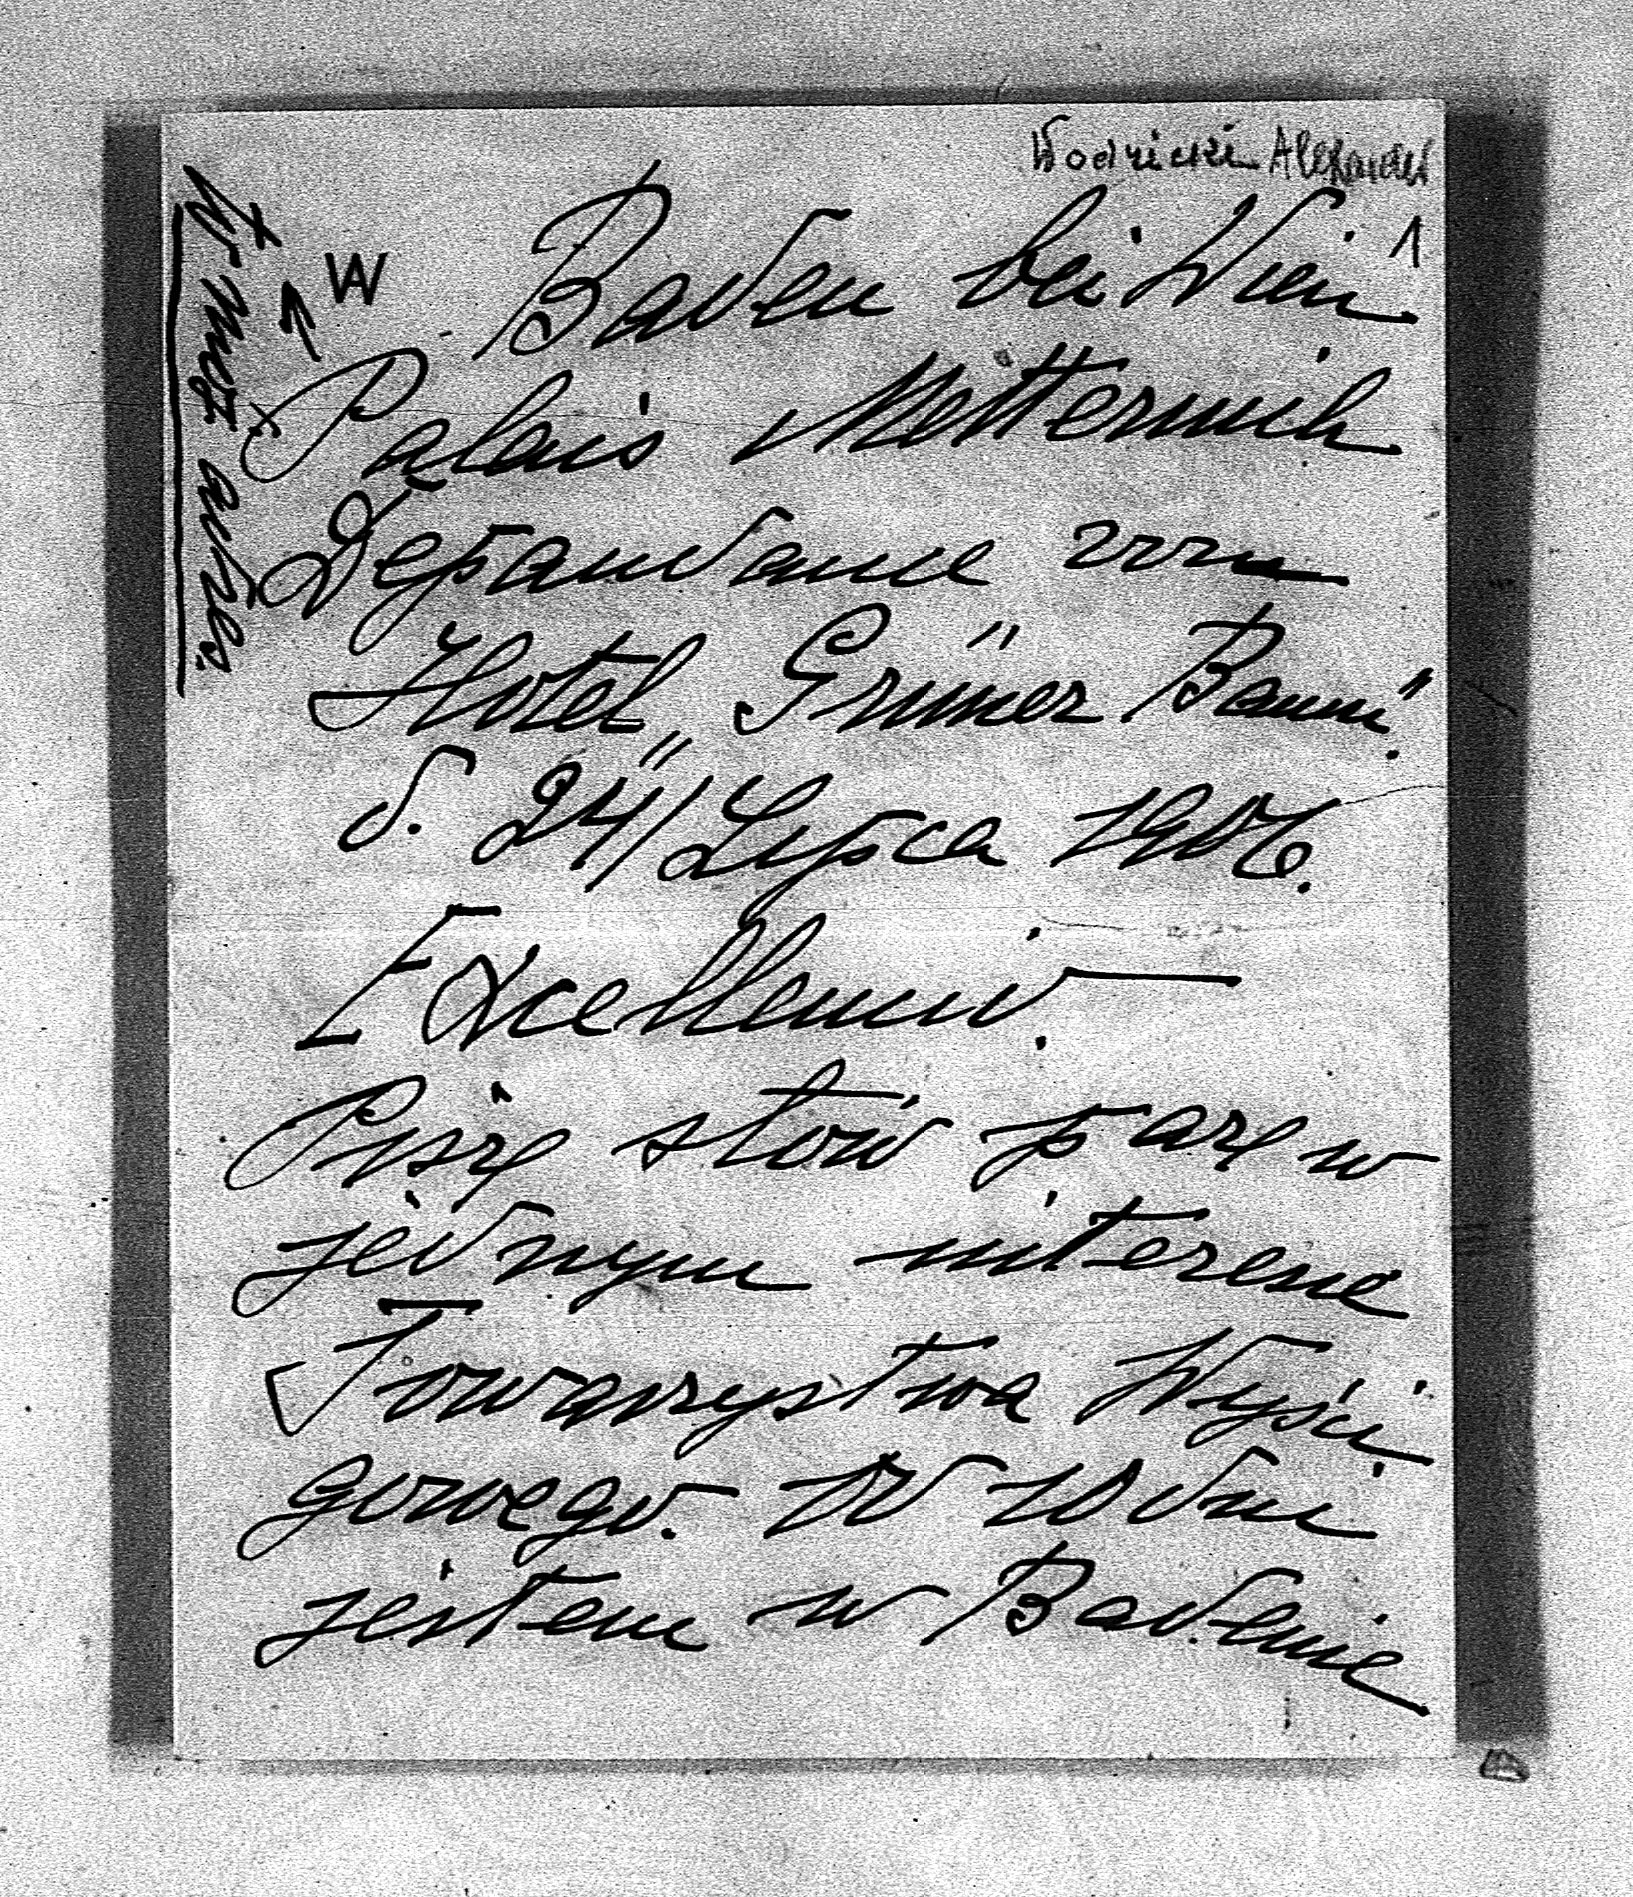 Wodzicki Alexander
1
AW
Baden bei Wien
Palais Metternich
Dépandance vom
Hotel "Grüner Baum".
d. 24/Lipca 1906.
Excellencio.
Piszę słów parę w
jednym interesie
Towarzystwa Wyści
gowego. Od 10 dni
jestem w Badenie